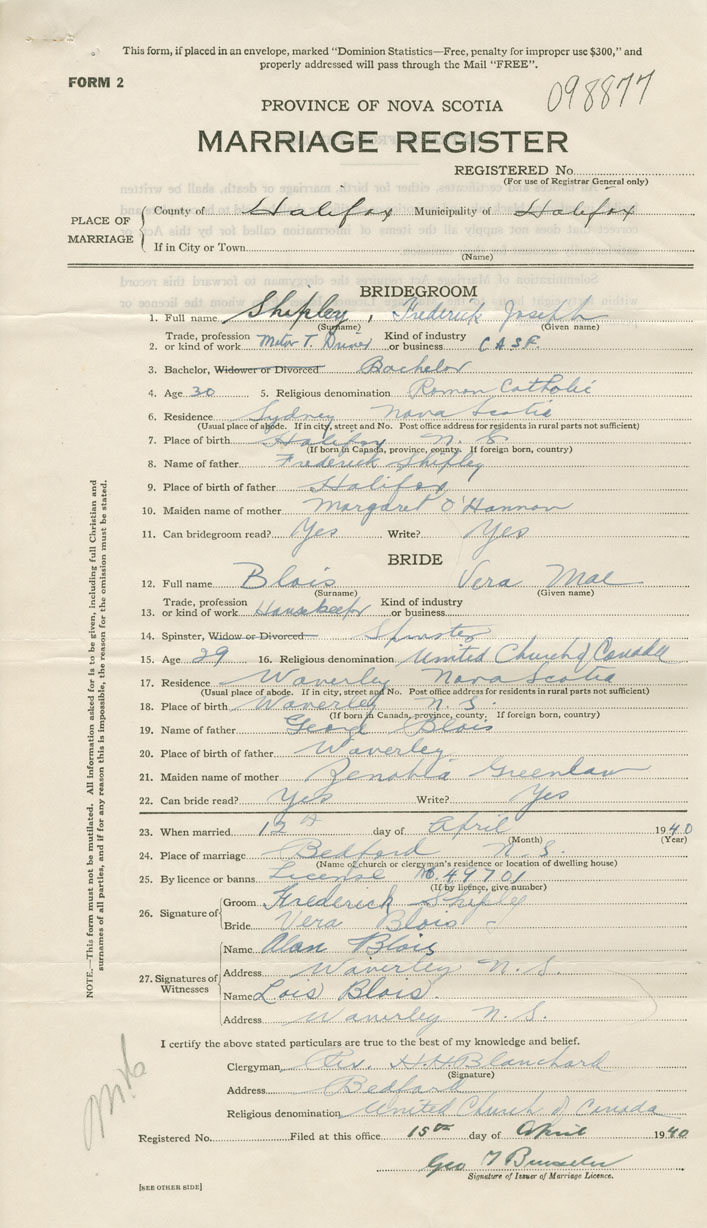 This form, if placed in an envelope, marked "Dominion Statistics—Free, penalty for improper use $300," and
properly addressed will pass through the Mail "FREE".
FORM 2
098877
PROVINCE OF NOVA SCOTIA
MARRIAGE REGISTER
REGISTERED No.
(For use of Registrar General only)
PLACE OF MARRIAGE
County of Halifax Municipality of Halifax
If in City or Town
(Name)
BRIDEGROOM
1. Full name Shipley, Frederick Joseph
(Surname) (Given name)
2. Trade, profession or kind of work Motor T. Driver Kind of industry or business C.A.S.F.
3. Bachelor, Widower or Divorced Bachelor
4. Age 30 5. Religious denomination Roman Catholic
6. Residence Sydney Nova Scotia
(Usual place of abode. If in city, street and No. Post office address for residents in rural parts not sufficient)
7. Place of birth Halifax N. S.
(If born in Canada, province, county. If foreign born, country)
8. Name of father Frederick Shipley
9. Place of birth of father Halifax
10. Maiden name of mother Margaret O'Hannon
11. Can bridegroom read? Yes Write? Yes
BRIDE
12. Full name Blois Vera Mae
(Surname) (Given name)
13. Trade, profession or kind of work Housekeeper Kind of industry or business
14. Spinster, Widow or Divorced Spinster
15. Age 29 16. Religious denomination United Church of Canada
17. Residence Waverley Nova Scotia
(Usual place of abode. If in city, street and No. Post office address for residents in rural parts not sufficient)
18. Place of birth Waverley N. S.
(If born in Canada, province, county. If foreign born, country)
19. Name of father George Blois
20. Place of birth of father Waverley
21. Maiden name of mother Zenobia Greenlaw
22. Can bride read? Yes Write? Yes
23. When married 12th day of April 1940
(Month) (Year)
24. Place of marriage Bedford N. S.
(Name of church or clergyman's residence or location of dwelling house)
25. By licence or banns License No. 49701
(If by licence, give number)
26. Signature of Groom Frederick Shipley
Bride Vera Blois
27. Signatures of Witnesses
Name Alan Blois
Address Waverley N. S.
Name Lois Blois.
Address Waverley N. S.
I certify the above stated particulars are true to the best of my knowledge and belief.
Clergyman Rev. H. H. Blanchard
(Signature)
Address Bedford
Religious denomination United Church of Canada
Registered No. Filed at this office 15th day of April 1940
Geo T
Signature of Issuer of Marriage Licence.
[SEE OTHER SIDE]
NOTE.—This form must not be mutilated. All information asked for is to be given, including full Christian and
surnames of all parties, and if for any reason this is impossible, the reason for the omission must be stated.